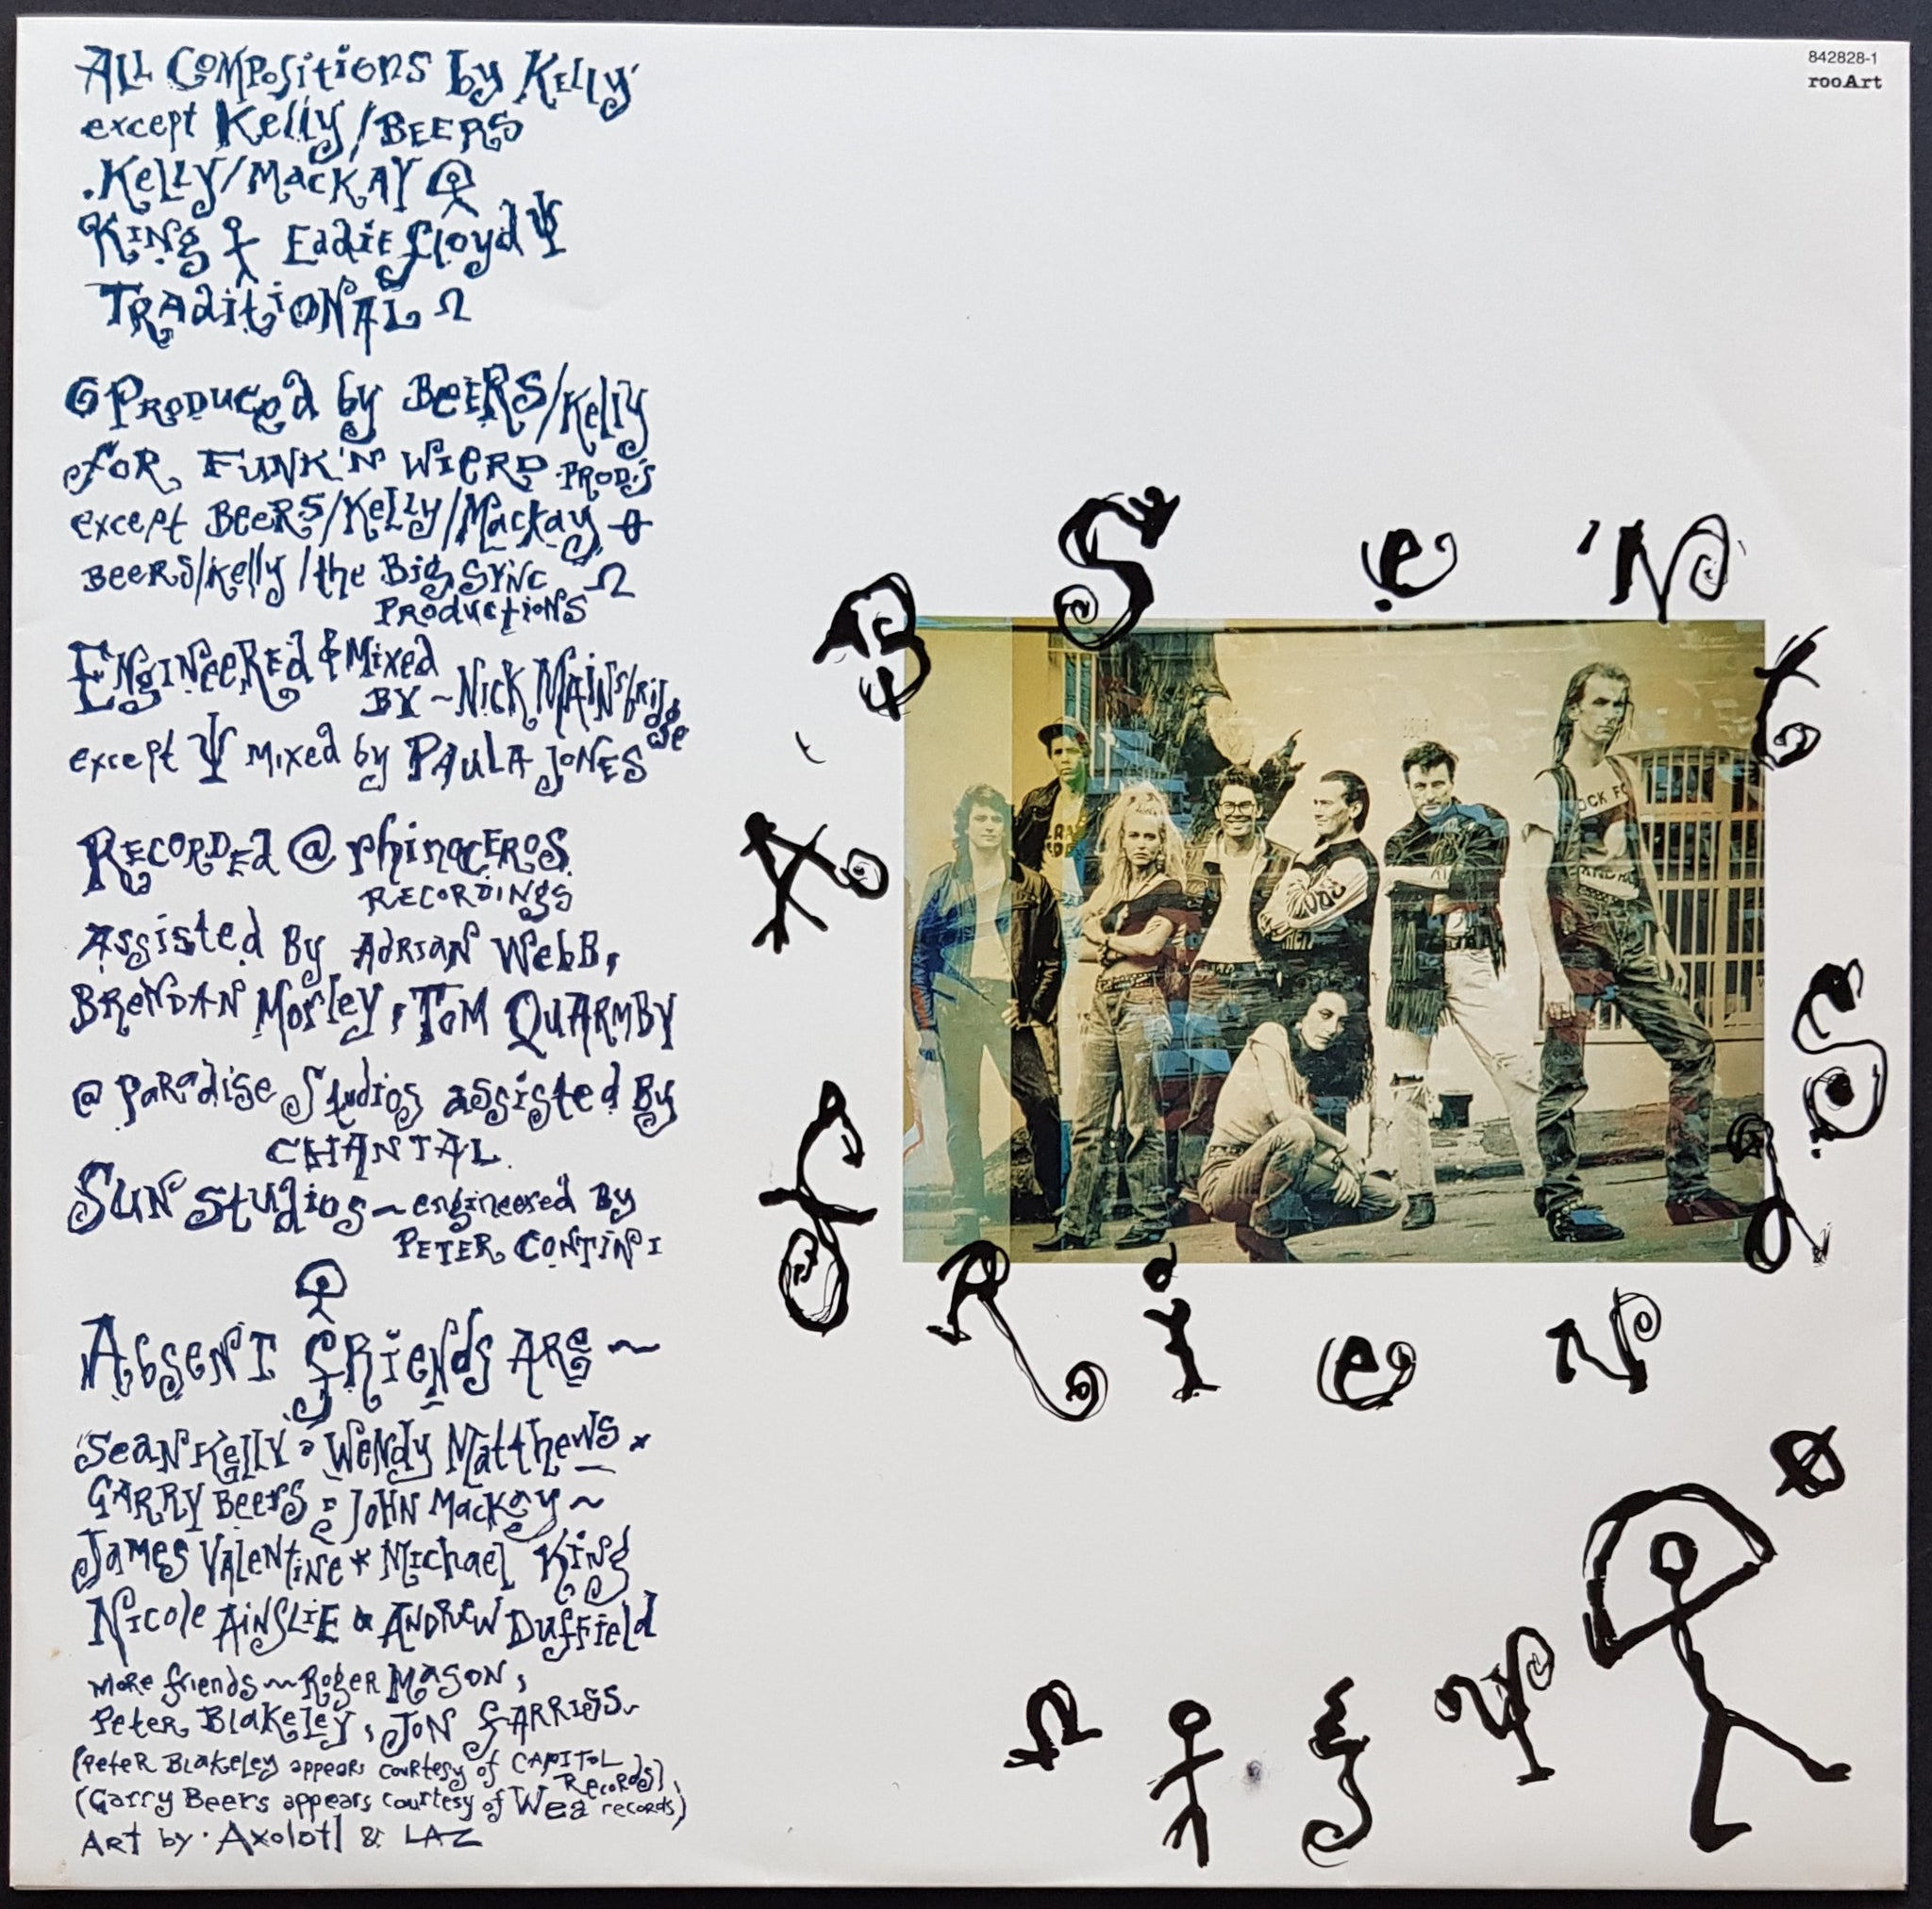 All Compositions by Kelly
except Kelly/BEERS
.Kelly/Mackay
King Eddie Floyd Ψ
Traditional Ω
Produced by Beers/Kelly
for FUNK'N WIERD PROD'S
except Beers/Kelly/Mackay
Beers/Kelly/the Big Sync Ω
Productions
Engineered & Mixed
BY ~ Nick Mainsbridge
except Ψ Mixed by PAULA JONES
Recorded @ rhinoceros
RECORDINGS
Assisted By Adrian Webb,
Brendan Morley, Tom Quarmby
@ Paradise Studios assisted By
CHANTAL.
Sun Studios ~ engineered By
PETER CONTINI
Absent Friends Are ~
Sean Kelly Wendy Matthews
Garry Beers John Mackay ~
James Valentine * Michael King
Nicole Ainslie & Andrew Duffield
More friends ~ Roger Mason,
Peter Blakeley, Jon Farriss
(Peter Blakeley appears courtesy of CAPITOL
Records)
(Garry Beers appears courtesy of Wea records)
Art by · Axolotl & LAZ
842828-1
rooArt
ABSeNt
fRieNdS
OCK FO
Ω
Ψ